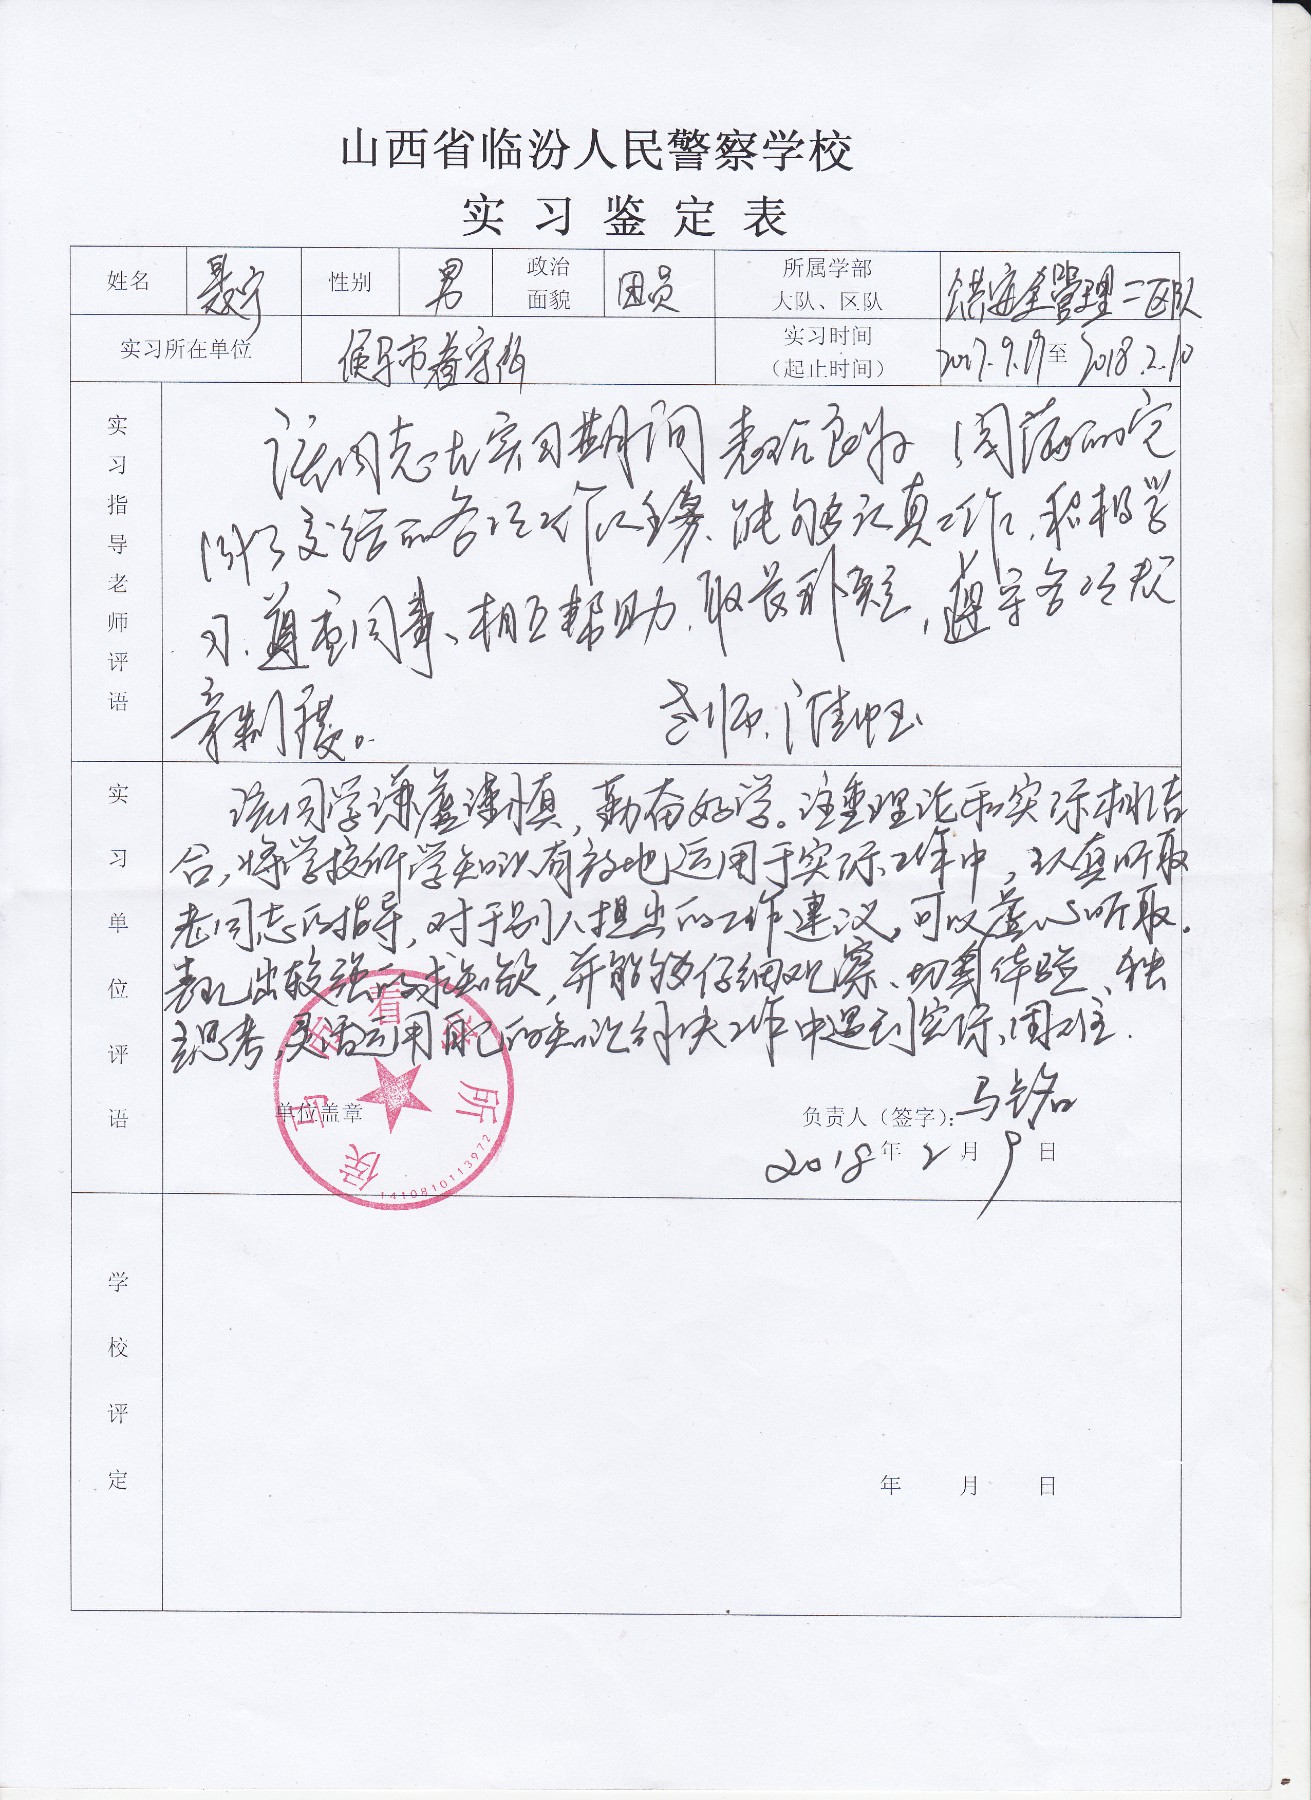 山西省临汾人民警察学校
实习鉴定表
姓名 聂宁 性别 男 政治面貌 团员 所属学部大队、区队 公共安全管理二区队
实习所在单位 侯马市看守所 实习时间（起止时间） 2017.9.19至2018.2.10
实习指导老师评语
该同志在实习期间表现良好，圆满的完
成了交给的各项工作任务、能够认真工作、积极学
习、尊重同事、相互帮助、取长补短，遵守各项规
章制度。 老师：
实习单位评语
该同学谦虚谨慎，勤奋好学。注重理论和实际相结
合，将学校所学知识有效地运用于实际工作中，认真听取
老同志的指导，对于别人提出的工作建议，可以虚心听取。
表现出较强的求知欲，并能够仔细观察、切身体验、独
立思考，灵活运用自己的知识解决工作中遇到实际困难.
侯马市看守所
1410810113972
单位盖章 负责人（签字）：马铭
2018年2月9日
学校评定
年 月 日